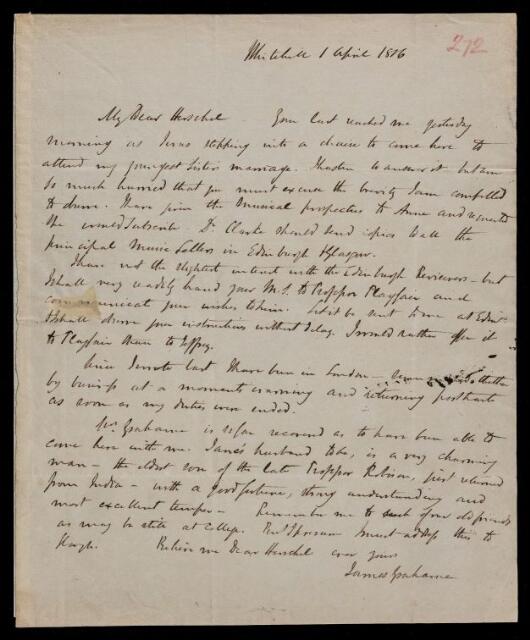 Whitehill 1 April 1816
272
My Dear Herschel Your last reached me yesterday
morning as I was stepping into a chaise to come here to
attend my youngest Sisters marriage. I hasten to answer it but am
so much hurried that you must excuse the brevity I am compelled
to observe. I have given the Musical prospectus to Anne and
she Subscribe Dr. Clarke should send copies to all the
principal Music Sellers in Edinburgh & Glasgow.
I have not the slightest interest with the Edinburgh Reviewers - but
I shall very readily hand your M.S. to Professor Playfair and
communicate your wishes to him. Let it be sent to me at Edinr
& I shall observe your instructions without delay. I would rather offer it
to Playfair than to Jeffrey.
Since I wrote last I have been in London - thither
by business at a moments warning and returning posthaste
as soon as my duties were ended.
Mrs Grahame is so far recovered as to have been able to
come here with me. Janes husband to be, is a very charming
man - the eldest son of the late Professor Robison, just returned
from India - with a good fortune, strong understanding and
most excellent temper - Remember me to such of our old friends
as may be still at College. I must address this to
Slough. Believe me Dear Herschel ever yours
James Grahame